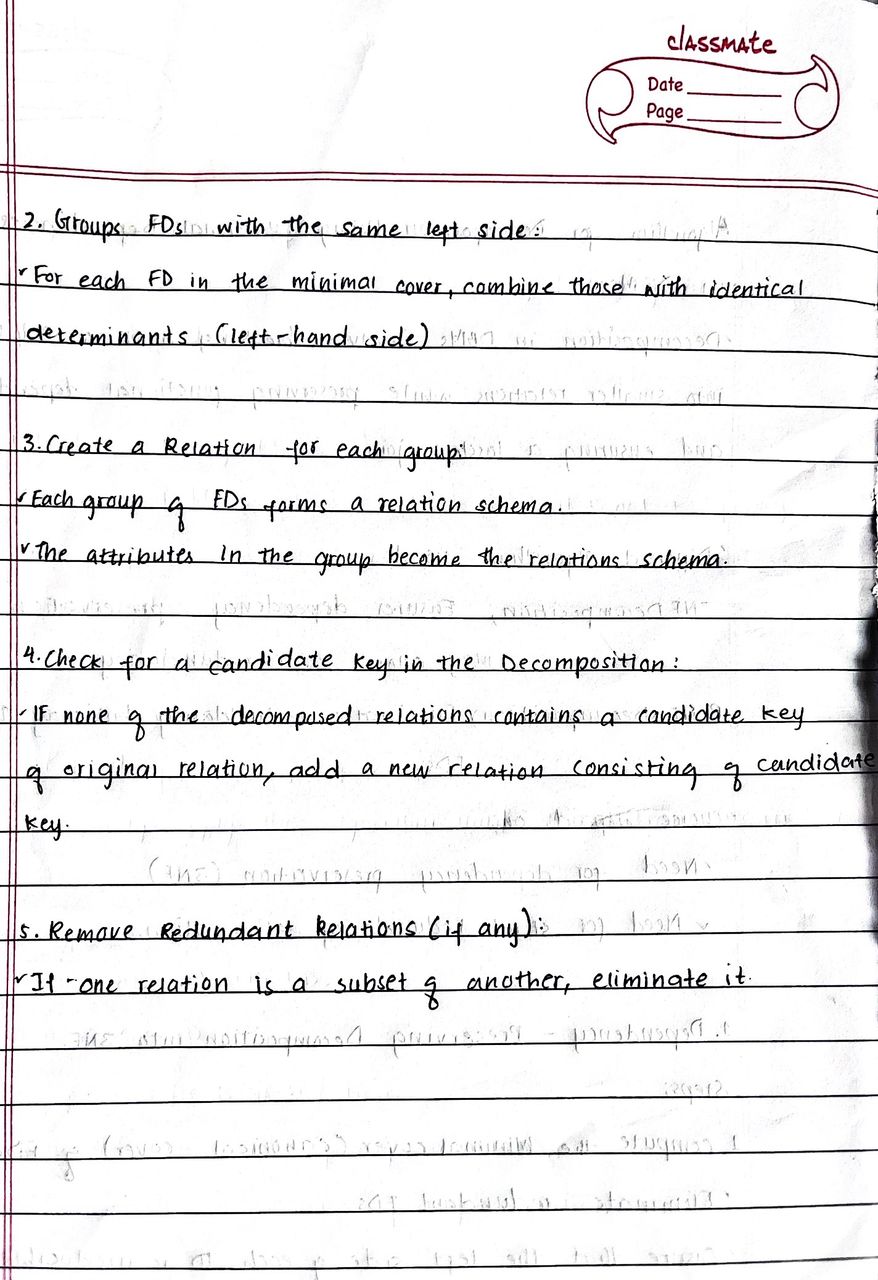 classmate
Date
Page
2. Groups FDs with the same left side:
✓ For each FD in the minimal cover, combine those with identical
determinants (left-hand side)
3. Create a Relation for each group:
✓ Each group of FDs forms a relation schema.
✓ The attributes in the group become the relations schema.
4. Check for a candidate key in the Decomposition:
✓ IF none of the decomposed relations contains a candidate key
of original relation, add a new relation consisting of candidate
key.
5. Remove Redundant Relations (if any):
✓ If one relation is a subset of another, eliminate it.